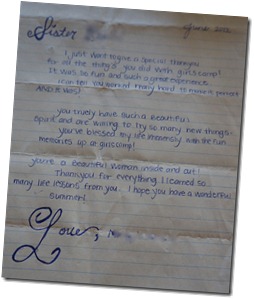 Sister
June 2012
I just want to give a special thank you
for all the things you did with girls camp!
It was so fun and such a great experience.
I can tell you worked really hard to make it perfect
AND it was!
you truely have such a beautiful
Spirit and are willing to try so many new things.
you've blessed my life immensly with the fun
memories up at girls camp!
you're a beautiful woman inside and out!
Thank you for everything. I learned so
many life lessons from you. I hope you have a wonderful
summer!
Love,